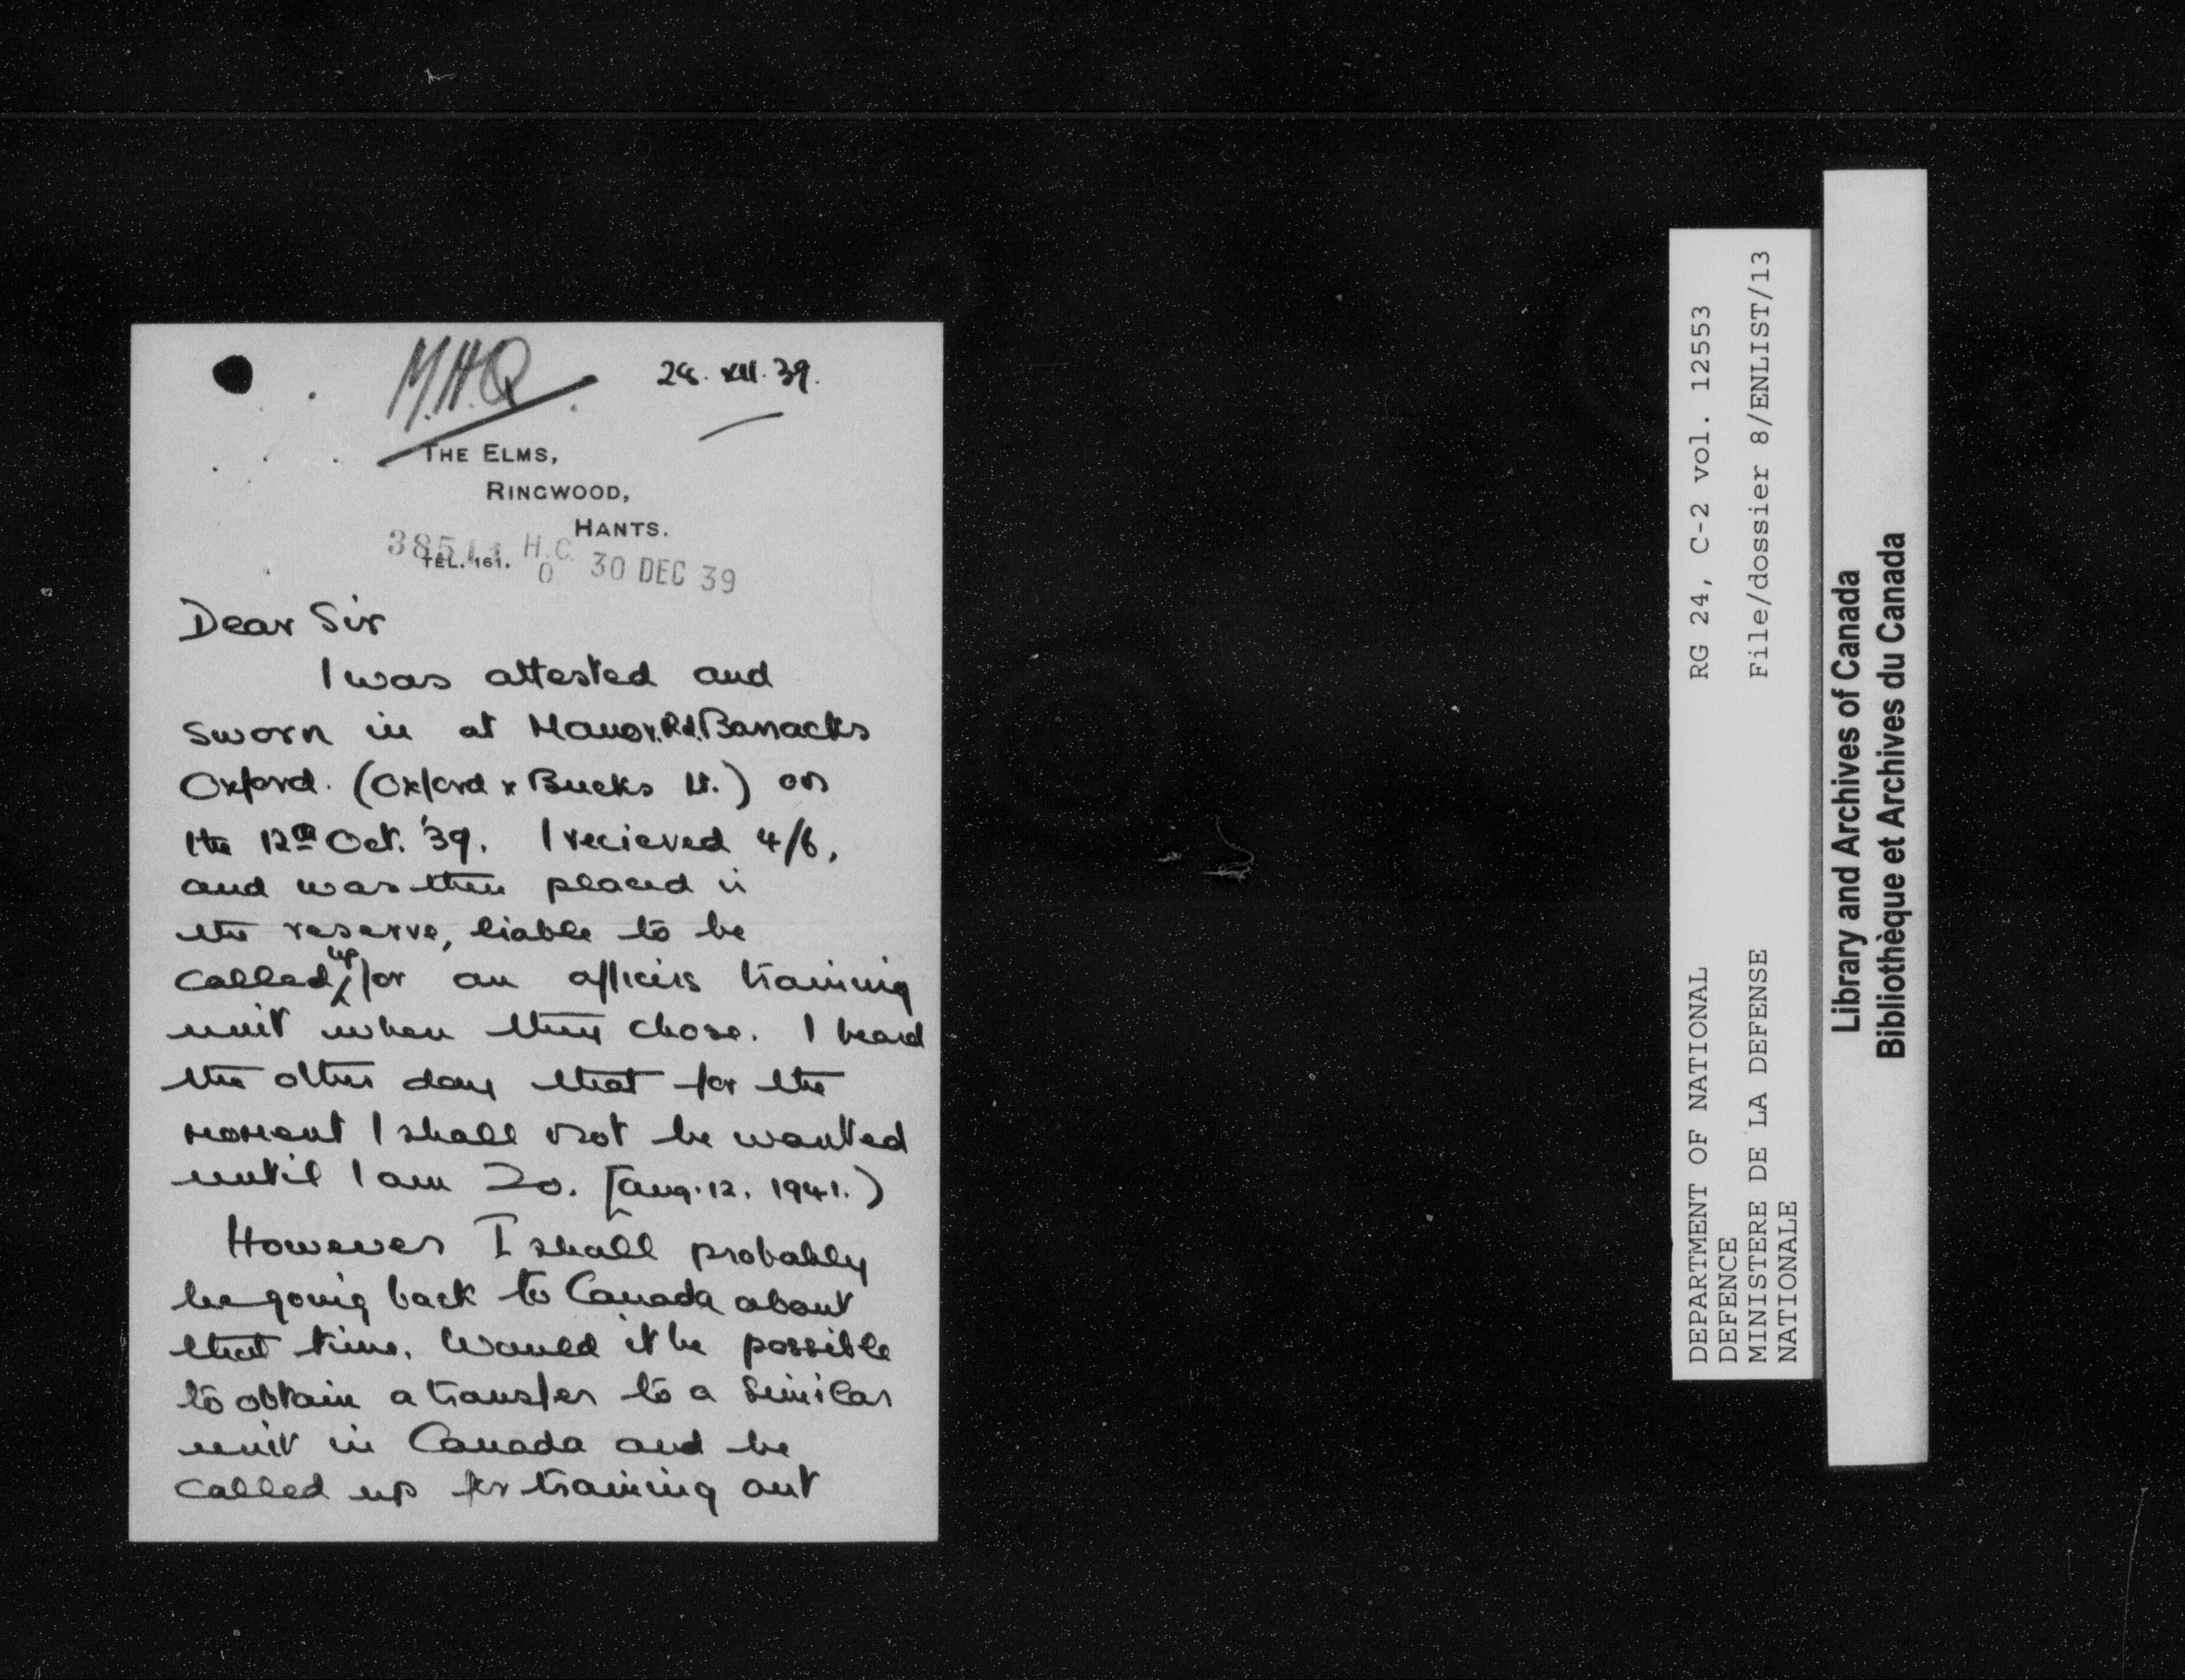 M.H.Q
28. XII. 39.
THE ELMS,
RINGWOOD,
HANTS.
TEL. 161.
H.C.
0
30 DEC 39
Dear Sir
I was attested and
sworn in at Manor. Rd. Barracks
Oxford. (Oxford & Bucks Lt.) on
the 12th Oct. '39. I recieved 4/6,
and was then placed in
the reserve, liable to be
called up for an officers training
unit when they chose. I heard
the other day that for the
moment I shall not be wanted
until I am 20. [Aug. 12. 1941.)
However I shall probably
be going back to Canada about
that time. Would it be possible
to obtain a transfer to a similar
unit in Canada and be
called up for training out
DEPARTMENT OF NATIONAL
DEFENCE
MINISTERE DE LA DEFENSE
NATIONALE
RG 24, C-2 vol. 12553
File/dossier 8/ENLIST/13
Library and Archives of Canada
Bibliothèque et Archives du Canada